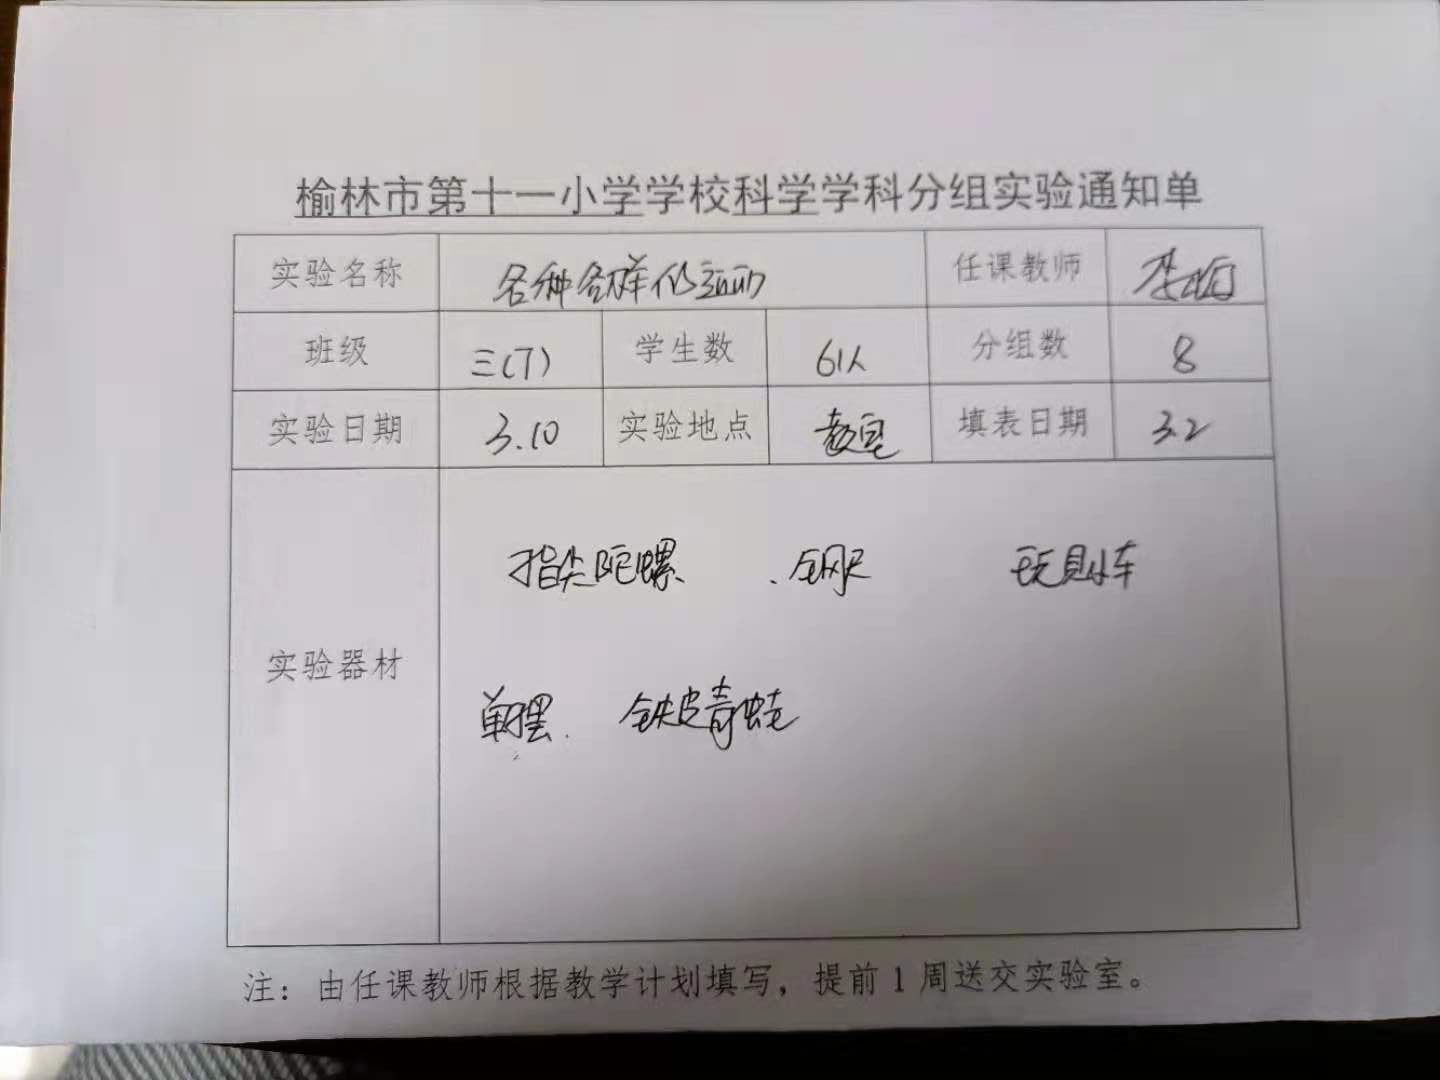 榆林市第十一小学学校科学学科分组实验通知单
实验名称 各种各样的运动 任课教师
班级 三(7) 学生数 61人 分组数 8
实验日期 3.10 实验地点 教室 填表日期 3.2
实验器材
指尖陀螺 、钢尺 玩具小车
单摆. 铁皮青蛙
注：由任课教师根据教学计划填写，提前1周送交实验室。